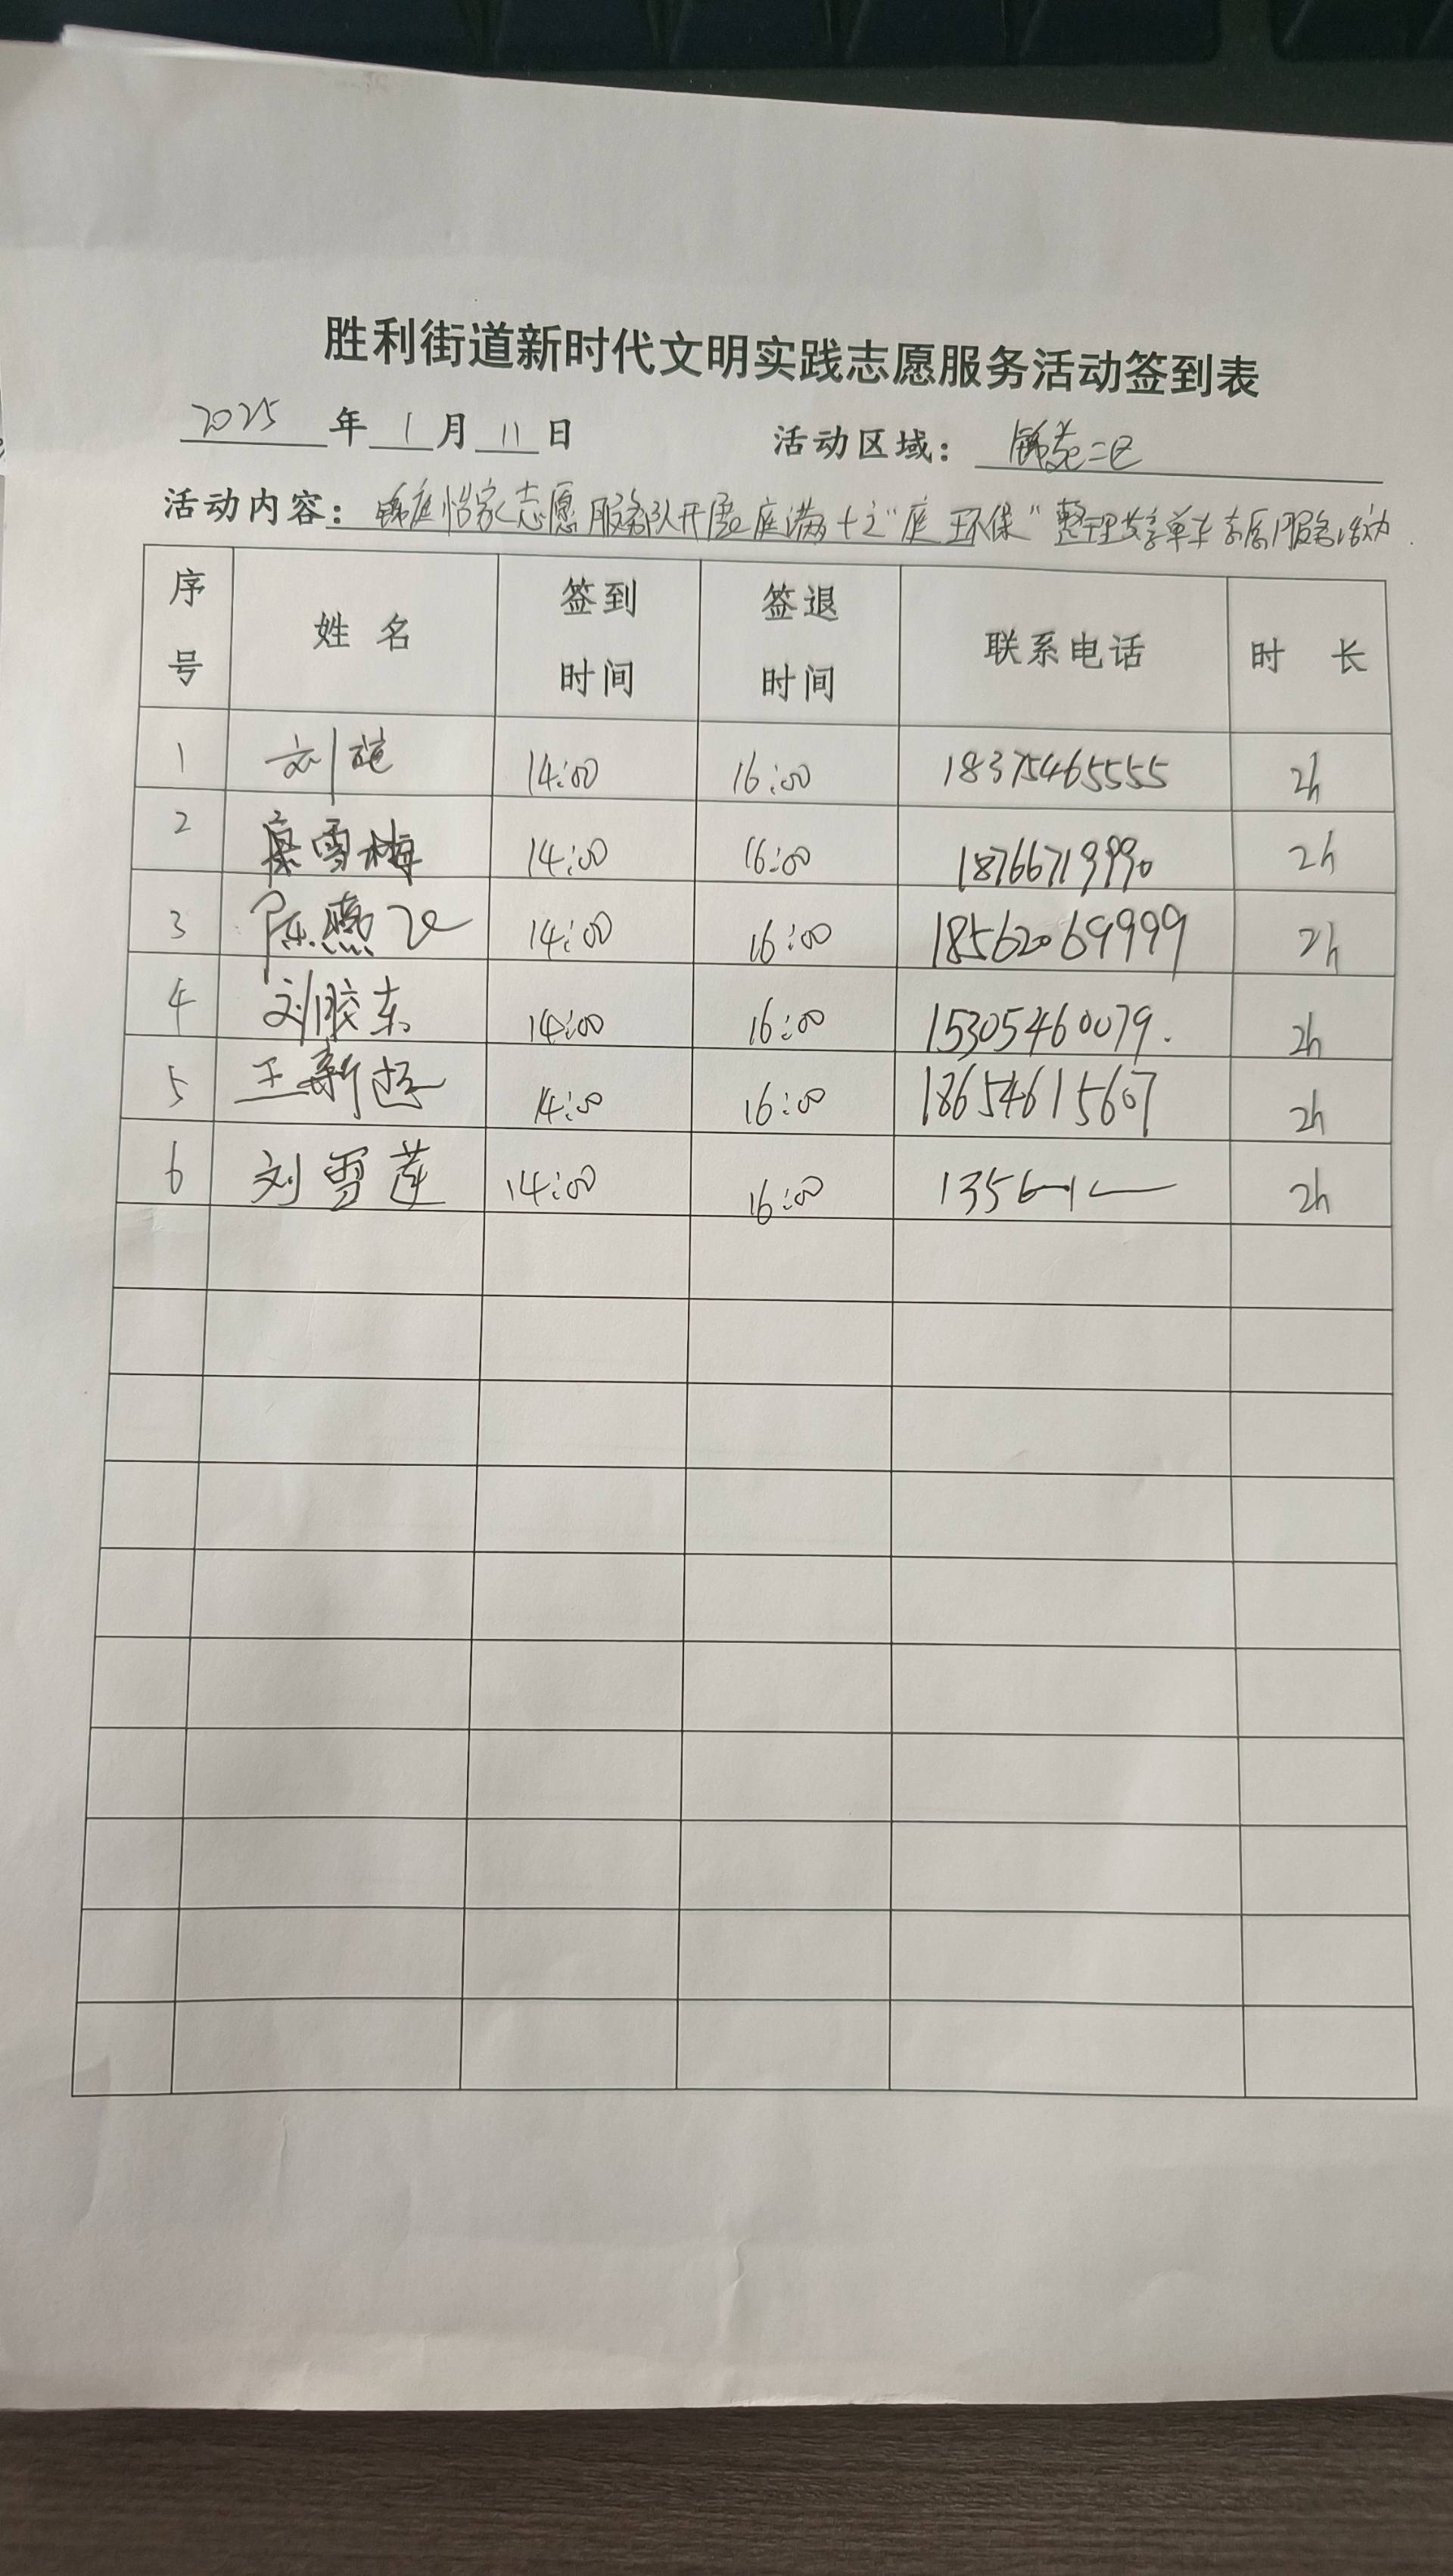 胜利街道新时代文明实践志愿服务活动签到表
2025 年 1 月 11 日 活动区域: 锦苑二区
活动内容: 锦庭怡家志愿服务队开展庭满十之“庭环保”整理共享单车志愿服务活动
序号 姓名 签到时间 签退时间 联系电话 时长
1 刘 14:00 16:00 18375465555 2h
2 雪梅 14:00 16:00 18766719990 2h
3 陈燕 14:00 16:00 18562069999 2h
4 刘胶东 14:00 16:00 15305460079. 2h
5 王新 14:00 16:00 18654615607 2h
6 刘雪莲 14:00 16:00 2h